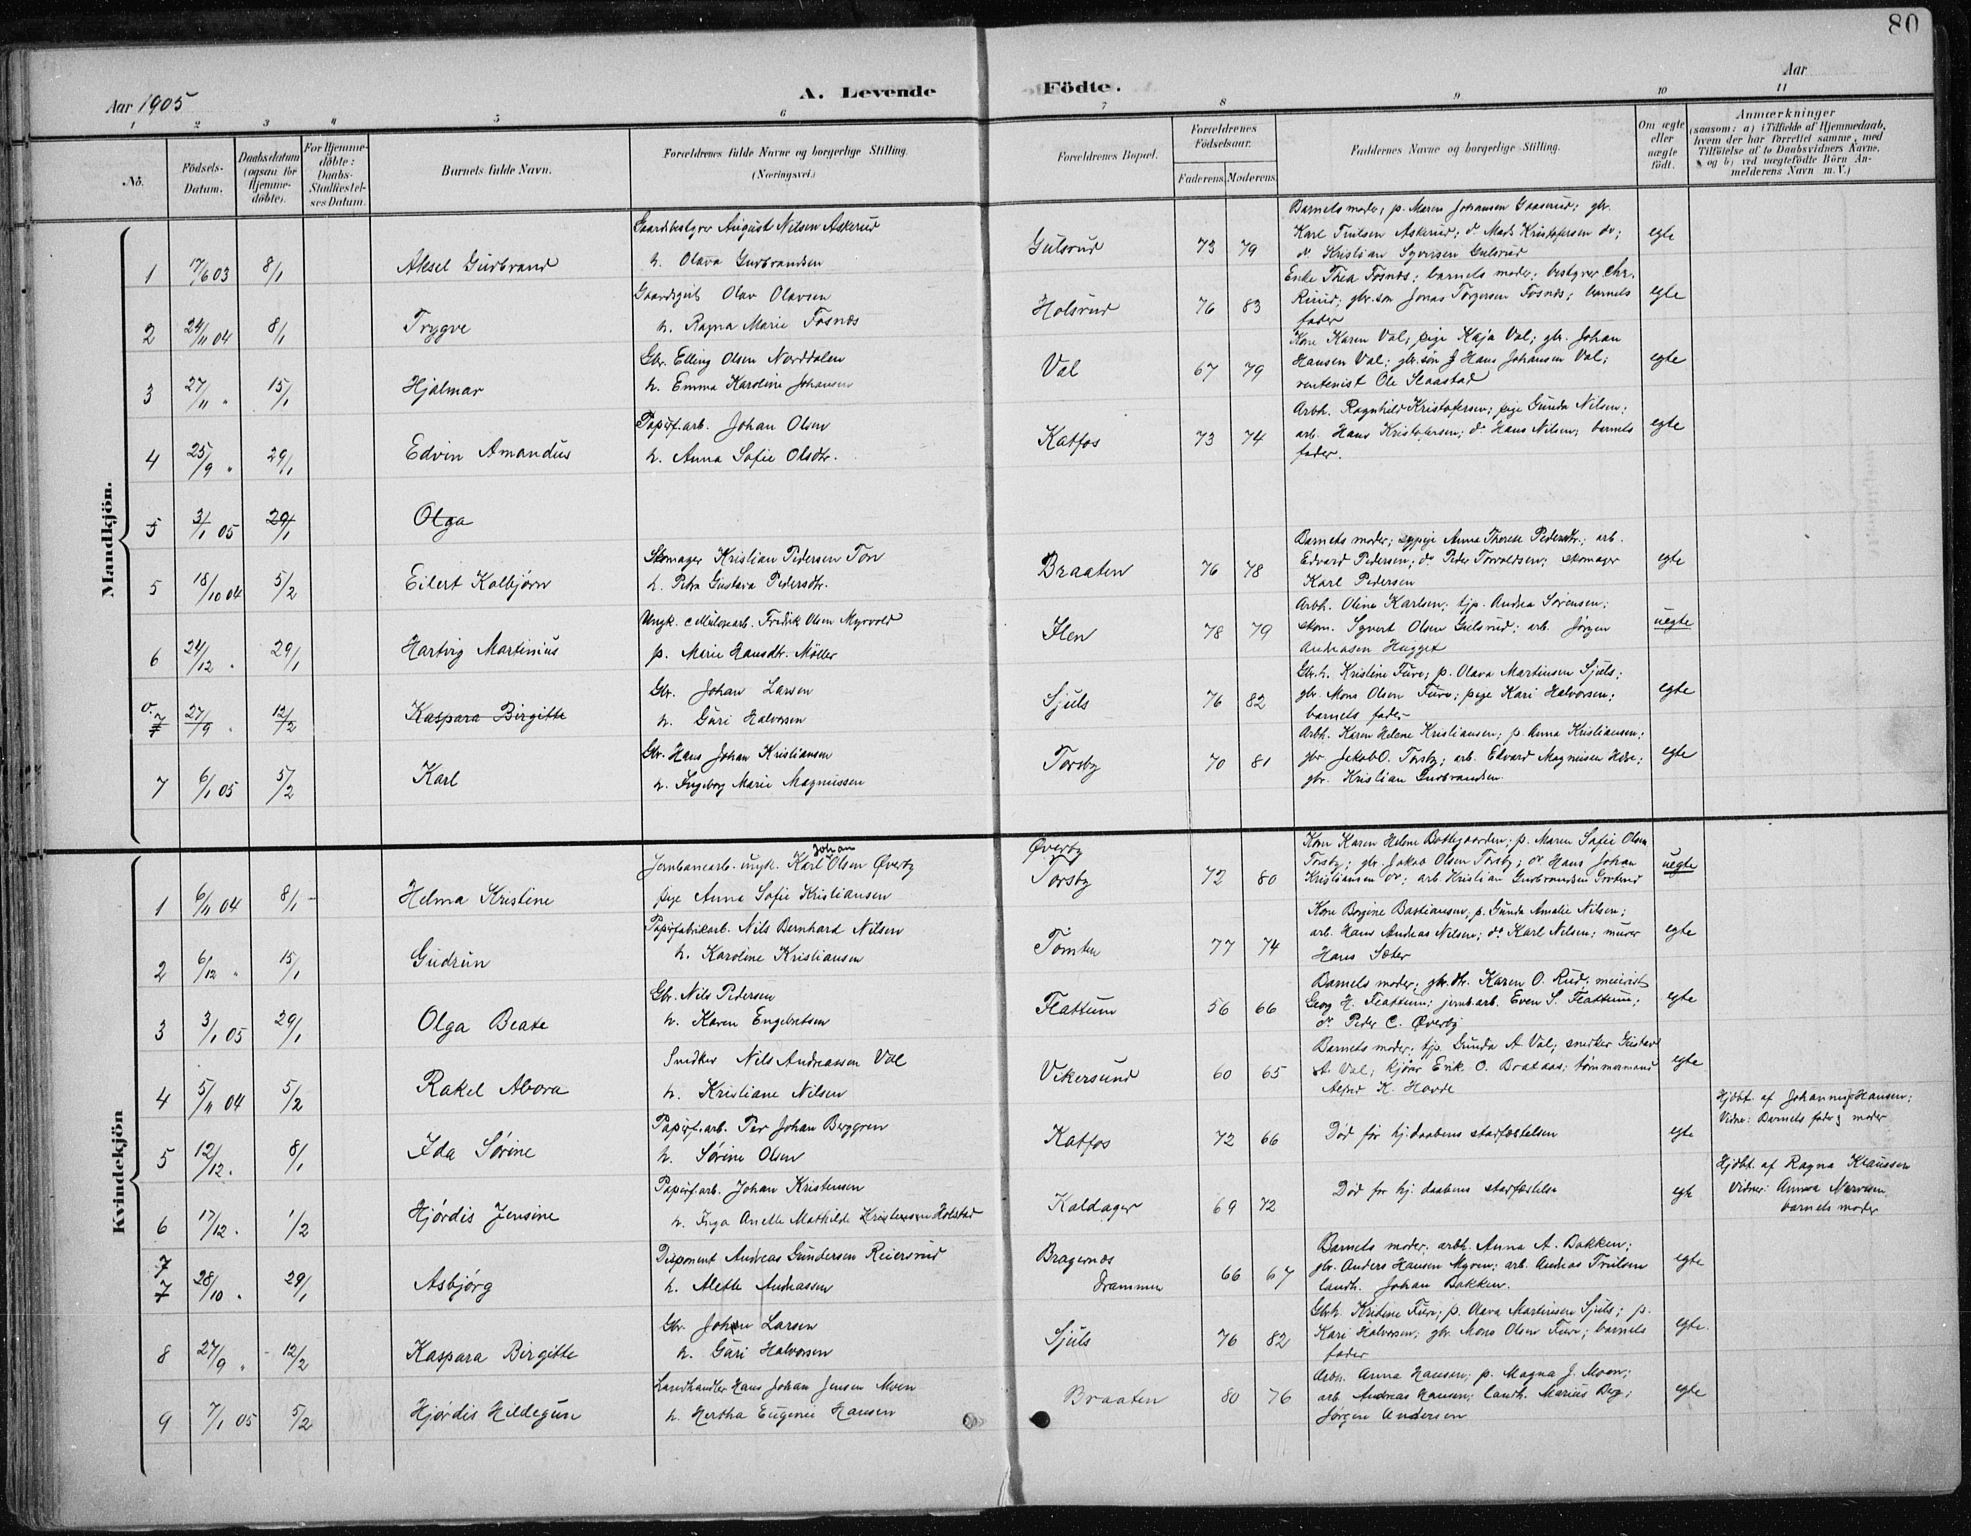 80
Aar 1905
A. Levende
Födte.
Aar
1 2 3 4 5 6 7 8 9 10 11
No.
Födsels-Datum.
Daabsdatum (ogsaa for Hjemme-döbte).
For Hjemme-döbte: Daabs-Stadfæstel-ses Datum.
Barnets fulde Navn.
Forældrenes fulde Navne og borgerlige Stilling. (Næringsvei.)
Forældrenes Bopæl.
Forældrenes Födselsaar.
Faderens. Moderens.
Faddernes Navne og borgerlige Stilling.
Om ægte eller uægte født.
Anmærkninger
(saasom: a) i Tilfælde af Hjemmedaab, hvem der har forrettet samme, med Tilföielse af to Daabsvidners Navne, og b) ved uægtefödte Börn An-melderens Navn m. V.)
Mandkjön.
Gaardbestyrer August Nilsen Askerud
Barnets moder; p. Maren Johansen Gaaserud; gbr.
1 17/6 03 8/1 Aksel Gudbrand h. Olava Gudbrandsen Gulsrud 73 79 Karl Trulsen Askerud; do Mads Kristofersen do; egte
do Kristian Syversen Gulsrud
Gaardsgut Olav Olavsen
Enke Thea Fosnæs; barnets moder; bestyrer Chr.
2 24/11 04 8/1 Trygve h. Ragna Marie Fosnæs Holsrud 76 83 Ruud; gbr.søn Jonas Torgersen Fosnæs; barnets egte
fader
Gbr. Elling Olsen Norddalen
Kone Karen Val; pige Kaja Val; gbr. Johan
3 27/11 " 15/1 Hjalmar h. Emma Karoline Johansen Val 67 79 Hansen Val; gbr.søn Hans Johansen Val; egte
rentenist Ole Slaastad
Papirf.arb. Johan Olsen
Arbh. Ragnhild Kristofersen; pige Gunda Nilsen;
4 25/9 " 29/1 Edvin Amandus h. Anna Sofie Olsdtr. Katfos 73 74 arb. Hans Kristofersen; do Hans Nilsen; barnets egte
fader.
5 3/1 05 29/1 Olga
Skomager Kristian Pedersen Ton
Barnets moder; sypige Anna Therese Pedersdtr.; arb.
5 18/10 04 5/2 Eilert Kolbjørn h. Petra Gustava Pedersdtr. Braaten 76 78 Edvard Pedersen; do Peder Torvaldsen; skomager egte
Karl Pedersen
Ungk. cellulosearb. Fredrik Olsen Myrvold
Arbh. Oline Karlsen; tjp. Andrea Sørensen;
6 24/12 " 29/1 Hartvig Martinius p. Marie Hansdtr. Möller Hen 78 79 skom. Syvert Olsen Gulsrud; arb. Jørgen uegte
Andreasen Hugget
Gbr. Johan Larsen
Gbr.h. Kristine Furu; p. Olava Martinsen Sjuls;
o. 7 27/9 " 12/2 Kaspara Birgitte h. Guri Halvorsen Sjuls 76 82 gbr. Mons Olsen Furu; pige Kari Halvorsen; egte
barnets fader
Gbr. Hans Johan Kristiansen
Arbh. Karen Helene Kristiansen; p. Anna Kristiansen;
7 6/1 05 5/2 Karl h. Ingeborg Marie Magnussen Torsby 70 81 gbr Jakob O. Torsby; arb. Edvard Magnussen; egte
gbr. Kristian Gudbrandsen
Kvindekjön
Jernbanearb. ungk. Karl Johan Olsen Øverby
Øverby
Kone Karen Helene Bottegaarden; p. Maren Sofie Olsen
1 6/11 04 8/1 Helma Kristine pige Anna Sofie Kristiansen Torsby 72 80 Torsby; gbr. Jakob Olsen Torsby; do Hans Johan uegte
Kristiansen do; arb Kristian Gudbrandsen
Papirfabrikarb. Nils Bernhard Nilsen
Kone Borgine Bastiansen; p. Gunda Amalie Nilsen;
2 6/12 " 15/1 Gudrun h. Karoline Kristiansen Tomten 77 74 arb. Hans Andreas Nilsen; do Karl Nilsen; murer egte
Hans Sæter
Gbr. Nils Pedersen
Barnets moder; gbr.dtr. Karen O. Rud; meierist
3 3/1 05 29/1 Olga Beate h. Karen Engebretsen Flattum 56 66 Georg H. Flattum; jernb.arb. Even S. Flattum; egte
do Peder C. Øverby
Snedker Nils Andreassen Val
Barnets moder; tjp. Gunda A Val; snedker Gustav
4 5/11 04 5/2 Rakel Abora h. Kristiane Nilsen Vikersund 60 65 A Val; kjører Erik O. Brataas; tømmermand egte
K. Hovde
Papirf.arb. Per Johan Berggren
5 12/12 " 8/1 Ida Sørine h. Sørine Olsen Katfos 72 66 Død før hj.daabens stadfæstelsen egte
Hjdbt. af Johannes Hansen;
Vidne: Barnets fader & moder
Papirf.arb. Johan Kristensen
6 17/12 " 1/2 Hjørdis Jensine h. Inga Anette Mathilde Kristensen Holstad Kaldager 69 72 Død før hj. daabens stadfæstelse egte
Hjdbt. af Ragna Klaussen
Vidner: Anna Narvesen,
barnets moder
Disponent Andreas Gundersen Reiersrud
Barnets moder; arbh. Anna A. Bakken;
7 7 28/10 " 29/1 Asbjørg h. Alette Andreassen Bragernæs Drammen 66 67 gbr. Anders Hansen Myren; arb. Andreas Trulsen egte
landh. Johan Bakken.
Gbr. Johan Larsen
Gbrh. Kristine Furu; p. Olava Martinsen Sjuls; p.
8 27/9 " 12/2 Kaspara Birgitte h. Guri Halvorsen Sjuls 76 82 Kari Halvorsen; gbr. Mons Olsen Furu; barnets egte.
fader
Landhandler Hans Johan Jensen Moen
Arbh. Anna Hansen; p. Magna J. Moen;
9 7/1 05 5/2 Hjørdis Hildegun h. Hertha Eugenie Hansen Braaten 80 76 arb. Andreas Hansen; landh. Marius Berg; egte
Jørgen Andersen